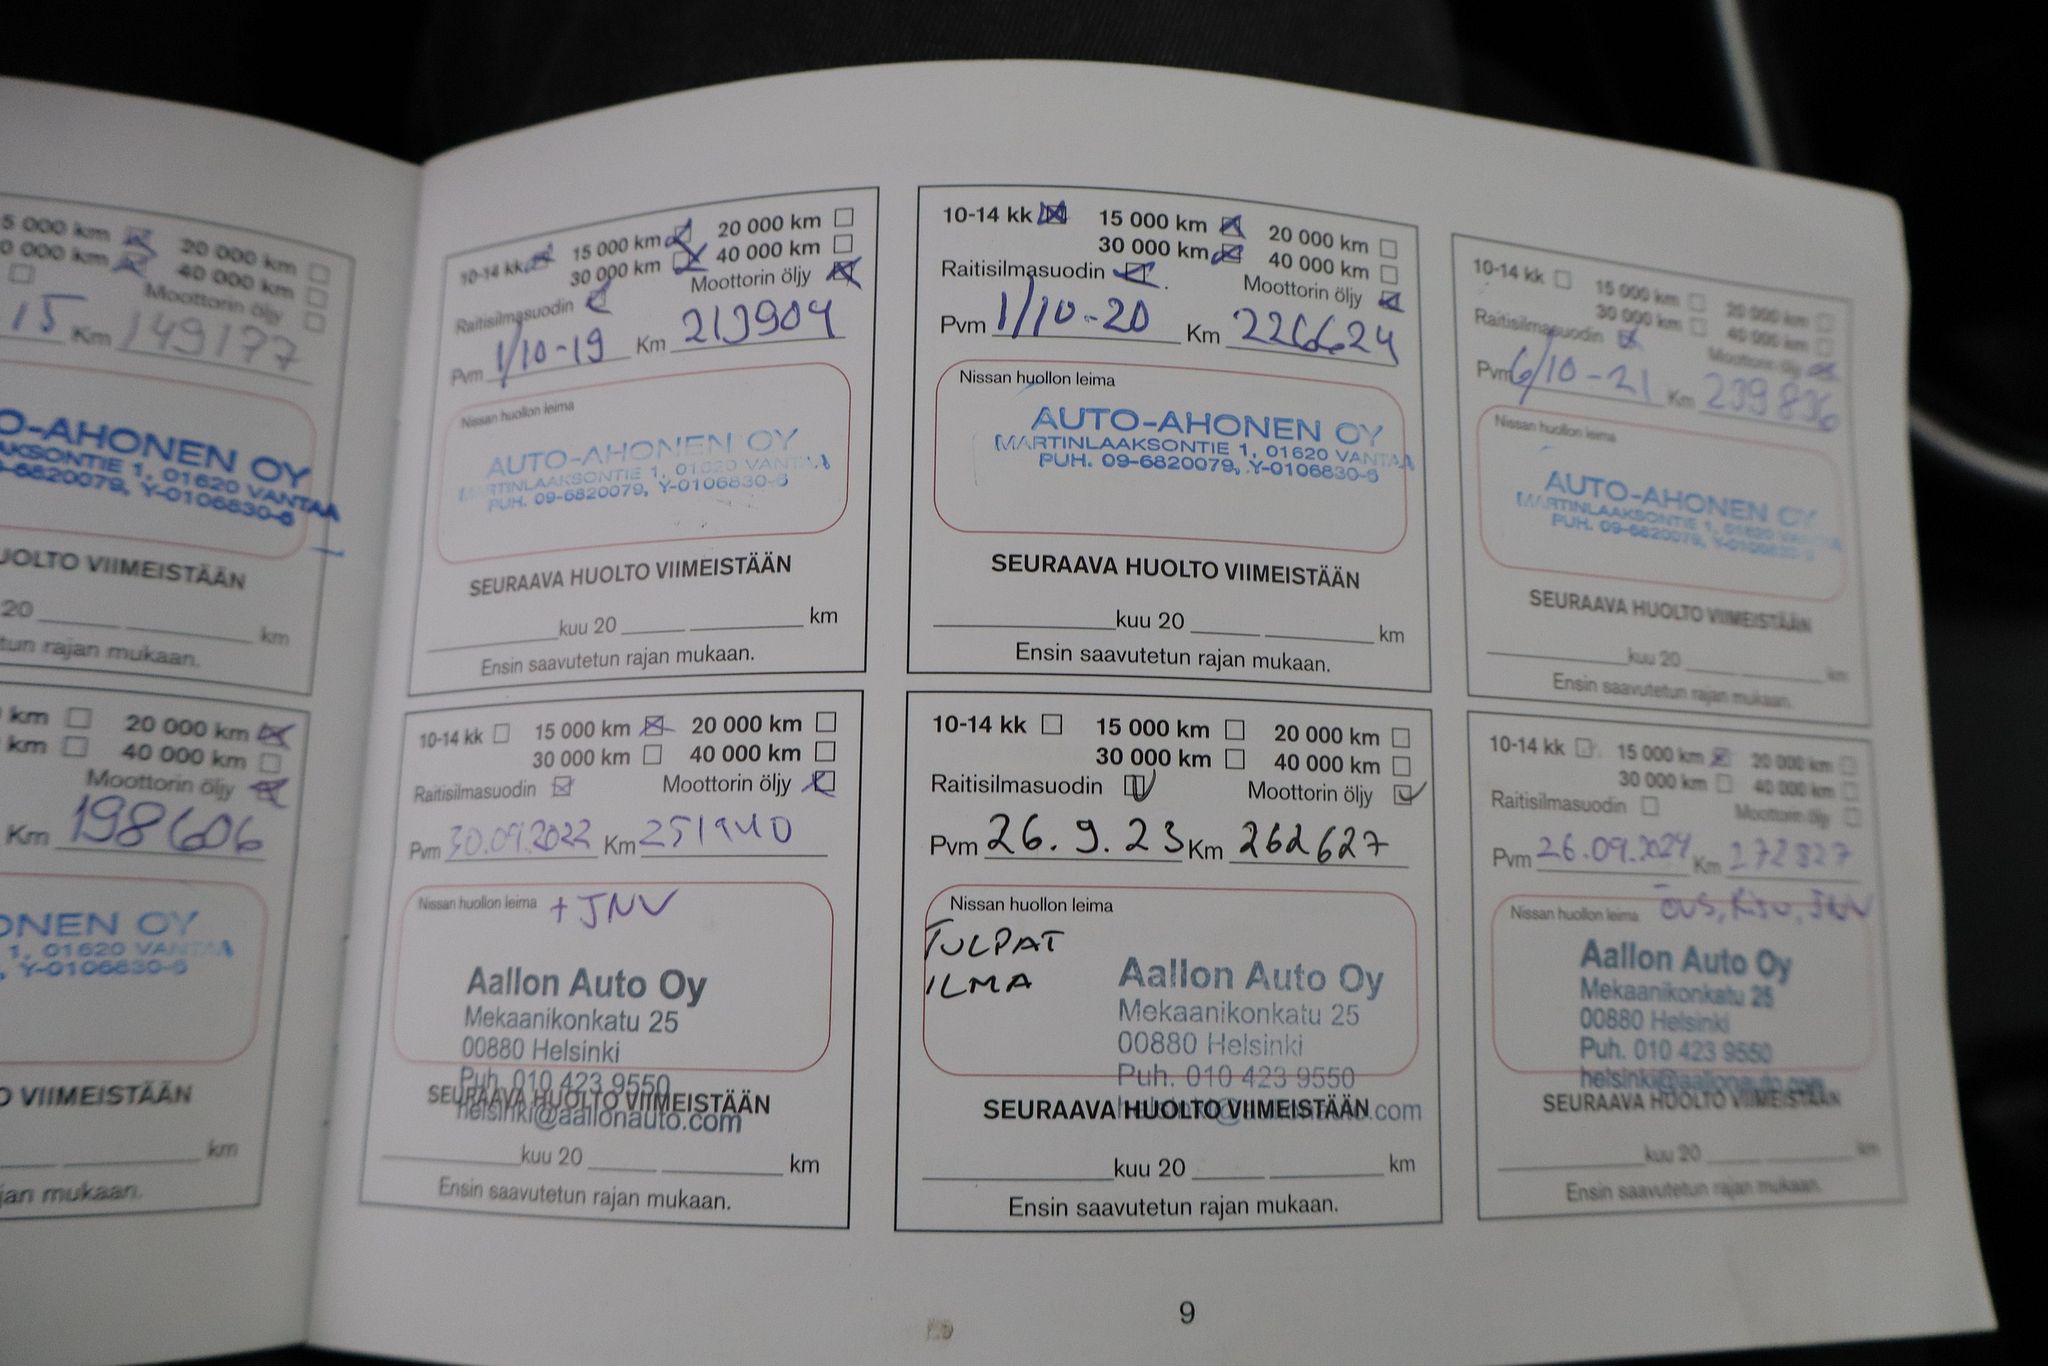 5 000 km 20 000 km
0 000 km 40 000 km
Moottorin öljy
15 Km 149177
O-AHONEN OY
AKSONTIE 1, 01620 VANTAA
9-6820079, Y-0106830-6
UOLTO VIIMEISTÄÄN
20 km
tun rajan mukaan.
km 20 000 km
km 40 000 km
Moottorin öljy
Km 198606
ONEN OY
1, 01620 VANTAA
, Y-0106830-6
O VIIMEISTÄÄN
km
jan mukaan.
10-14 kk 15 000 km 20 000 km
30 000 km 40 000 km
Raitisilmasuodin Moottorin öljy
Pvm 1/10-19 Km 213904
Nissan huollon leima
AUTO-AHONEN OY
MARTINLAAKSONTIE 1, 01620 VANTAA
PUH. 09-6820079, Y-0106830-6
SEURAAVA HUOLTO VIIMEISTÄÄN
kuu 20 km
Ensin saavutetun rajan mukaan.
10-14 kk 15 000 km 20 000 km
30 000 km 40 000 km
Raitisilmasuodin Moottorin öljy
Pvm 1/10-20 Km 226624
Nissan huollon leima
AUTO-AHONEN OY
MARTINLAAKSONTIE 1, 01620 VANTAA
PUH. 09-6820079, Y-0106830-6
SEURAAVA HUOLTO VIIMEISTÄÄN
kuu 20 km
Ensin saavutetun rajan mukaan.
10-14 kk 15 000 km 20 000 km
30 000 km 40 000 km
Raitisilmasuodin Moottorin öljy
Pvm 6/10-21 Km 239836
Nissan huollon leima
AUTO-AHONEN OY
MARTINLAAKSONTIE 1, 01620 VANTAA
PUH. 09-6820079, Y-0106830-6
SEURAAVA HUOLTO VIIMEISTÄÄN
kuu 20 km
Ensin saavutetun rajan mukaan.
10-14 kk 15 000 km 20 000 km
30 000 km 40 000 km
Raitisilmasuodin Moottorin öljy
Pvm 30.09.2022 Km 251940
Nissan huollon leima + JNV
Aallon Auto Oy
Mekaanikonkatu 25
00880 Helsinki
Puh. 010 423 9550
SEURAAVA HUOLTO VIIMEISTÄÄN
helsinki@aallonauto.com
kuu 20 km
Ensin saavutetun rajan mukaan.
10-14 kk 15 000 km 20 000 km
30 000 km 40 000 km
Raitisilmasuodin Moottorin öljy
Pvm 26.9.23 Km 262627
Nissan huollon leima
TULPAT
ILMA
Aallon Auto Oy
Mekaanikonkatu 25
00880 Helsinki
Puh. 010 423 9550
SEURAAVA HUOLTO VIIMEISTÄÄN
helsinki@aallonauto.com
kuu 20 km
Ensin saavutetun rajan mukaan.
10-14 kk 15 000 km 20 000 km
30 000 km 40 000 km
Raitisilmasuodin Moottorin öljy
Pvm 26.09.2024 Km 272827
Nissan huollon leima JNV
Aallon Auto Oy
Mekaanikonkatu 25
00880 Helsinki
Puh. 010 423 9550
helsinki@aallonauto.com
SEURAAVA HUOLTO VIIMEISTÄÄN
kuu 20 km
Ensin saavutetun rajan mukaan.
9